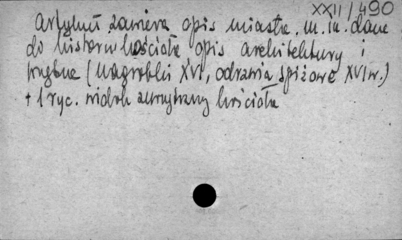 XXII/490
Artykuł zawiera opis miasta, m. in. dane
do historii kościoła opis architektury i
wnętrza (Nagrobki XVI, odrzwia spiżowe XVI w.)
+ 1 ryc. widok zewnętrzny kościoła